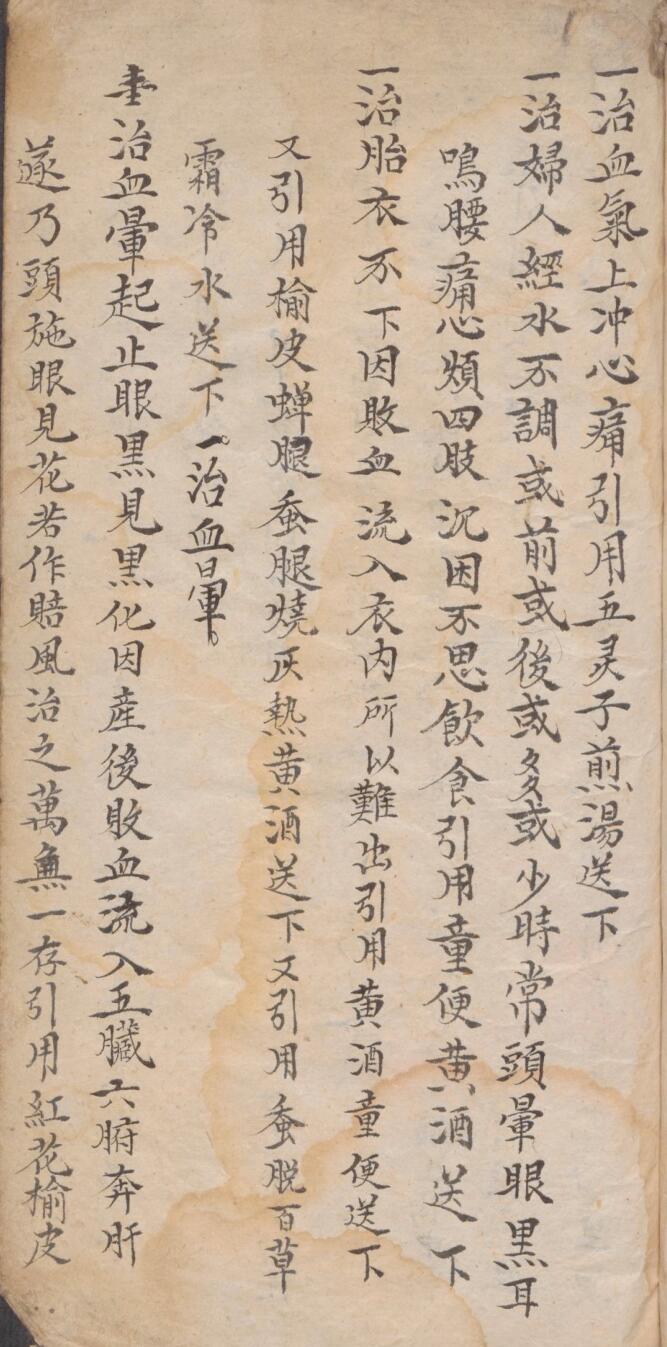 一治血氣上冲心痛引用五灵子煎湯送下
一治婦人經水不調或前或後或多或少時常頭暈眼黒耳
鳴腰痛心煩四肢沉困不思飲食引用童便黄酒送下
一治胎衣不下因敗血流入衣内所以難出引用黄酒童便送下
又引用榆皮蝉腿蚕腿燒灰熱黄酒送下又引用蚕脱百草
霜冷水送下一治血暈
治血暈起止眼黒見黒化因産後敗血流入五臟六腑奔肝
遂乃頭施眼見花若作賠風治之萬無一存引用紅花榆皮